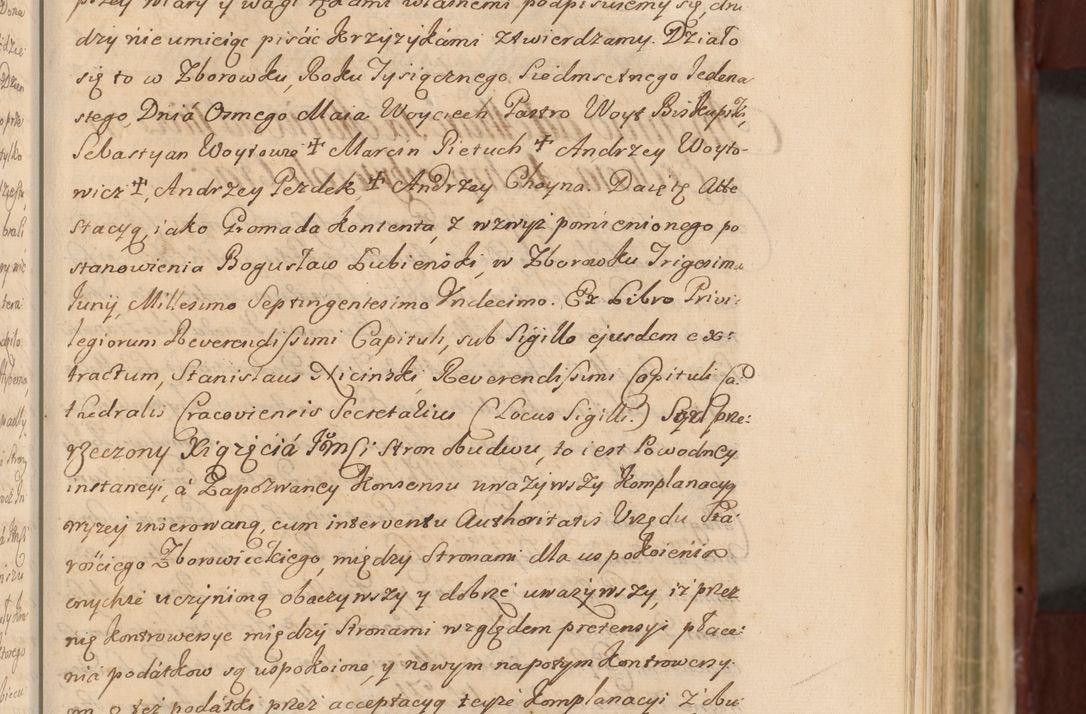 przey wiary y wagi rękami własnemi podpisuiemy się, dru
dzy nie umieiąc pisáć krzyżykámi ztwierdzamy. Działo
się to w Zborowku, Roku Tysiącznego Siedmsetnego Iedena
stego, Dniá Osmego Maia Woyciech Pastro Woyt Biskupski,
Sebastyan Woytowic ✝ Marcin Pietuch ✝ Andrzey Woyto-
wicz ✝, Andrzey Pezdek, ✝ Andrzey Choyna. Daię tę Atte
stacyą, iako Gromada kontenta, z wzwyż pomienionego po
stanowienia Bogusław Łubieński, w Zborowku Trigesima
Iunij, Millesimo Septingentesimo Undecimo. Ex Libro Privi-
legiorum Reverendissimi Capituli, sub Sigillo ejusdem ex:
tractum, Stanislaus Nicinski, Reverendissimi Capituli Ca
thedralis Cracoviensis Secretárius (Locus Sigilli.) Sąd prze:
rzeczony Xiążęciá Jmści stron obudwu, to iest Powodney
instancyi, á Zapozwaney Konsensu uważywszy komplanacyą
wyżey inserowaną, cum interventu Authoritatis Urzędu Sta-
rościego Zborowieckiego, między Stronami dla uspokoienia
onychże uczynioną obaczywszy y dobrze uważywszy, iż przez
nię kontrowersye między Stronami względem pretensyi płace:
nia podátkow są uspokoione, y nowym napotym kontrowersy-
om o też podátki przez acceptacyą teyże komplanacyi z obu